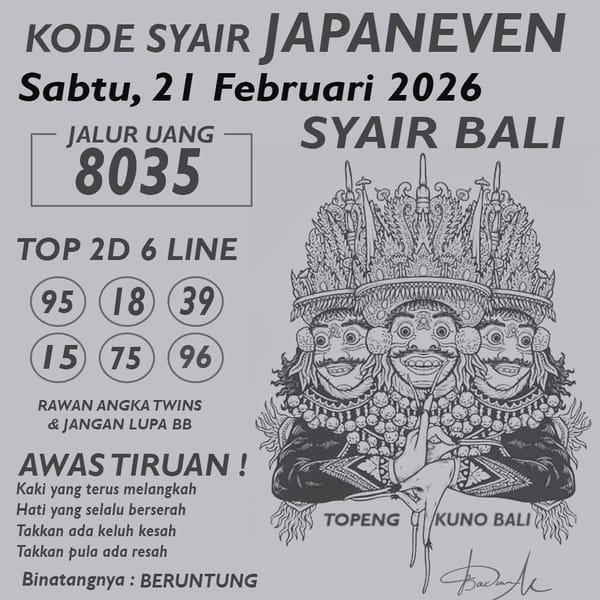 KODE SYAIR JAPANEVEN
Sabtu, 21 Februari 2026
JALUR UANG
8035
SYAIR BALI
TOP 2D 6 LINE
95 18 39
15 75 96
RAWAN ANGKA TWINS
& JANGAN LUPA BB
AWAS TIRUAN !
Kaki yang terus melangkah
Hati yang selalu berserah
Takkan ada keluh kesah
Takkan pula ada resah
Binatangnya : BERUNTUNG
TOPENG KUNO BALI